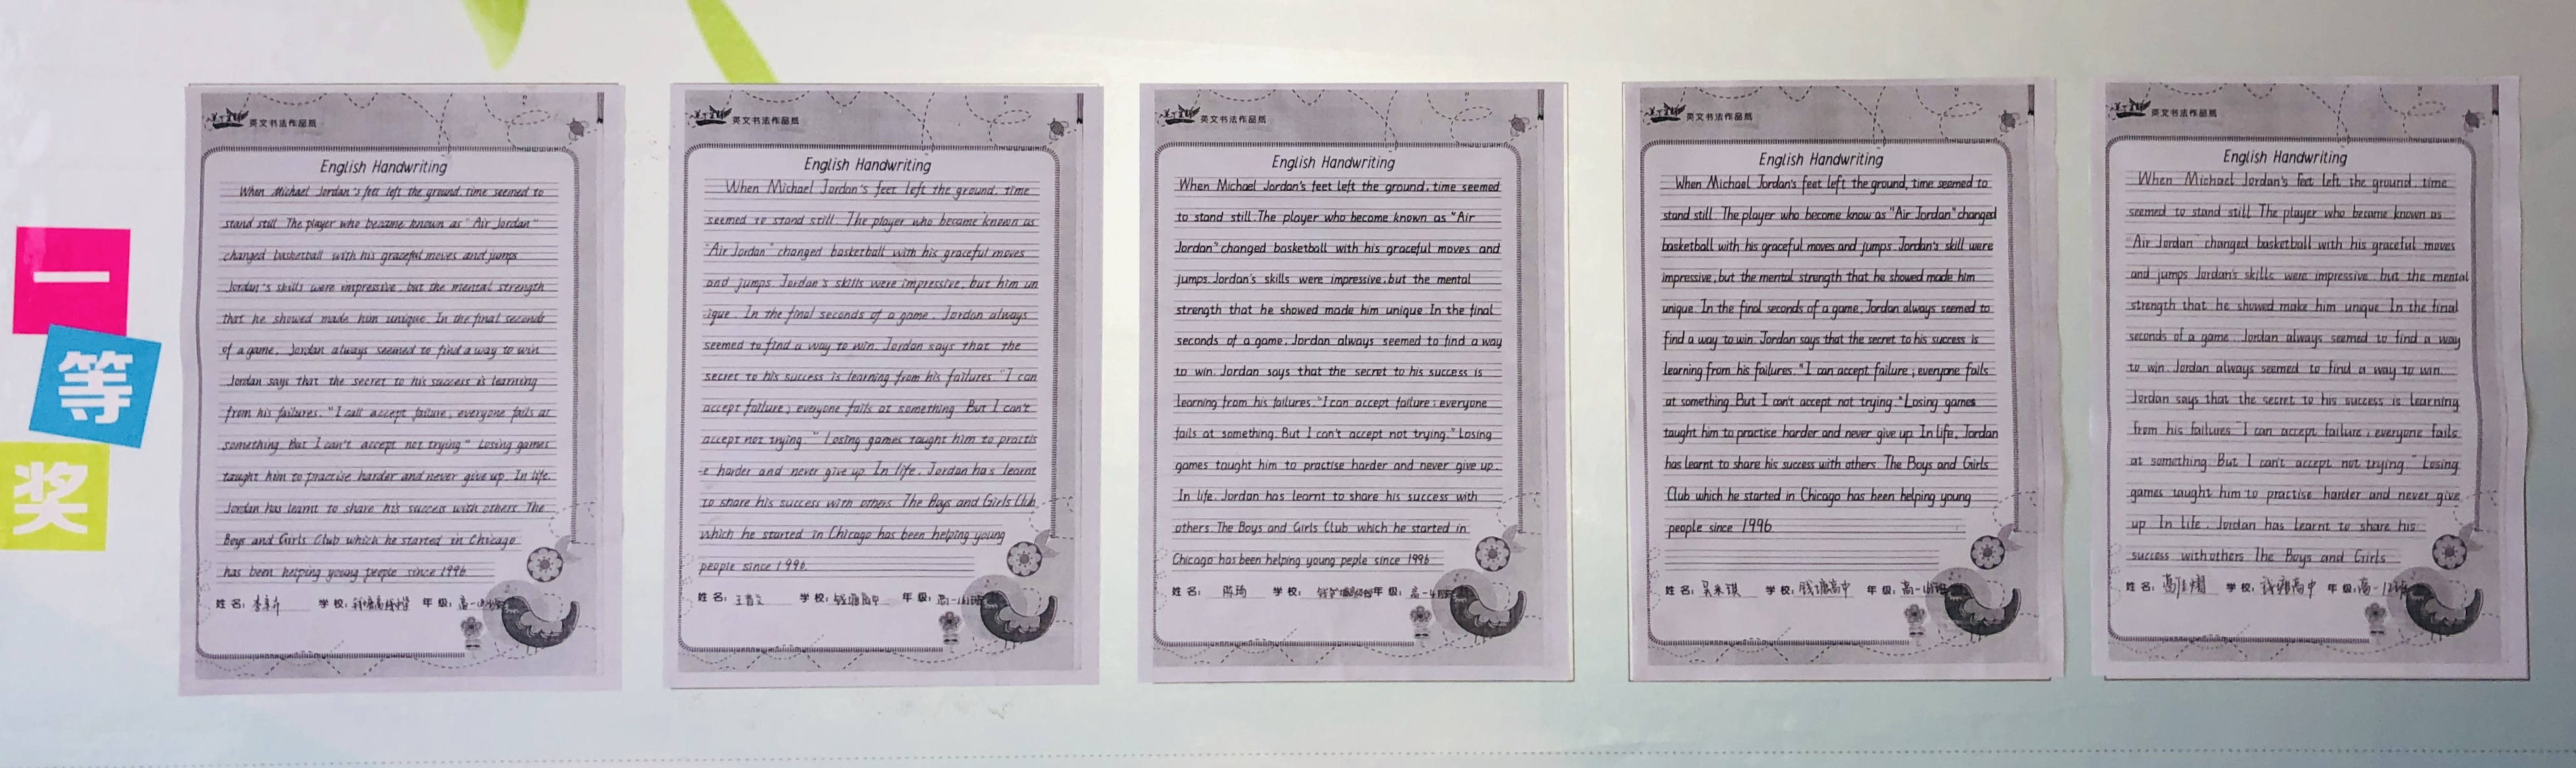 一
等
奖
英文书法作品纸
English Handwriting
When Michael Jordan's feet left the ground, time seemed to
stand still. The player who became known as "Air Jordan"
changed basketball with his graceful moves and jumps
Jordan's skills were impressive, but the mental strength
that he showed made him unique. In the final seconds
of a game, Jordan always seemed to find a way to win
Jordan says that the secret to his success is learning
from his failures. "I call accept failure, everyone fails at
something. But I can't accept not trying" Losing games
taught him to practise harder and never give up. In life,
Jordan has learnt to share his success with others. The
Boys and Girls Club which he started in Chicago
has been helping young people since 1996
姓名: 学校: 年级:
英文书法作品纸
English Handwriting
When Michael Jordan's feet left the ground, time
seemed to stand still. The player who became known as
"Air Jordan" changed basketball with his graceful moves
and jumps. Jordan's skills were impressive, but him un
-ique. In the final seconds of a game, Jordan always
seemed to find a way to win. Jordan says that the
secret to his success is learning from his failures. "I can
accept failure; everyone fails at something But I can't
accept not trying." Losing games taught him to practis
-e harder and never give up In life, Jordan has learnt
to share his success with others. The Boys and Girls Club
which he started in Chicago has been helping young
people since 1996.
姓名: 学校: 钱塘高中 年级:
英文书法作品纸
English Handwriting
When Michael Jordan's feet left the ground, time seemed
to stand still. The player who become known as "Air
Jordan" changed basketball with his graceful moves and
jumps. Jordan's skills were impressive, but the mental
strength that he showed made him unique. In the final
seconds of a game, Jordan always seemed to find a way
to win. Jordan says that the secret to his success is
learning from his failures. "I can accept failure; everyone
fails at something. But I can't accept not trying." Losing
games taught him to practise harder and never give up.
In life, Jordan has learnt to share his success with
others. The Boys and Girls Club which he started in
Chicago has been helping young peple since 1996
姓名: 陈琦 学校: 年级:
英文书法作品纸
English Handwriting
When Michael Jordan's feet left the ground, time seemed to
stand still. The player who become know as "Air Jordan" changed
basketball with his graceful moves and jumps. Jordan's skill were
impressive, but the mental strength that he showed made him
unique. In the final seconds of a game, Jordan always seemed to
find a way to win. Jordan says that the secret to his success is
learning from his failures. "I can accept failure; everyone fails
at something. But I can't accept not trying." Losing games
taught him to practise harder and never give up. In life, Jordan
has learnt to share his success with others. The Boys and Girls
Club which he started in Chicago has been helping young
people since 1996
姓名: 吴米琪 学校: 钱塘高中 年级:
英文书法作品纸
English Handwriting
When Michael Jordan's feet left the ground, time
seemed to stand still. The player who became known as
"Air Jordan" changed basketball with his graceful moves
and jumps. Jordan's skills were impressive, but the mental
strength that he showed make him unique. In the final
seconds of a game, Jordan always seemed to find a way
to win. Jordan always seemed to find a way to win.
Jordan says that the secret to his success is learning
from his failures "I can accept failure; everyone fails
at something. But I can't accept not trying." Losing
games taught him to practise harder and never give
up In life, Jordan has learnt to share his
success with others The Boys and Girls
姓名: 学校: 钱塘高中 年级: